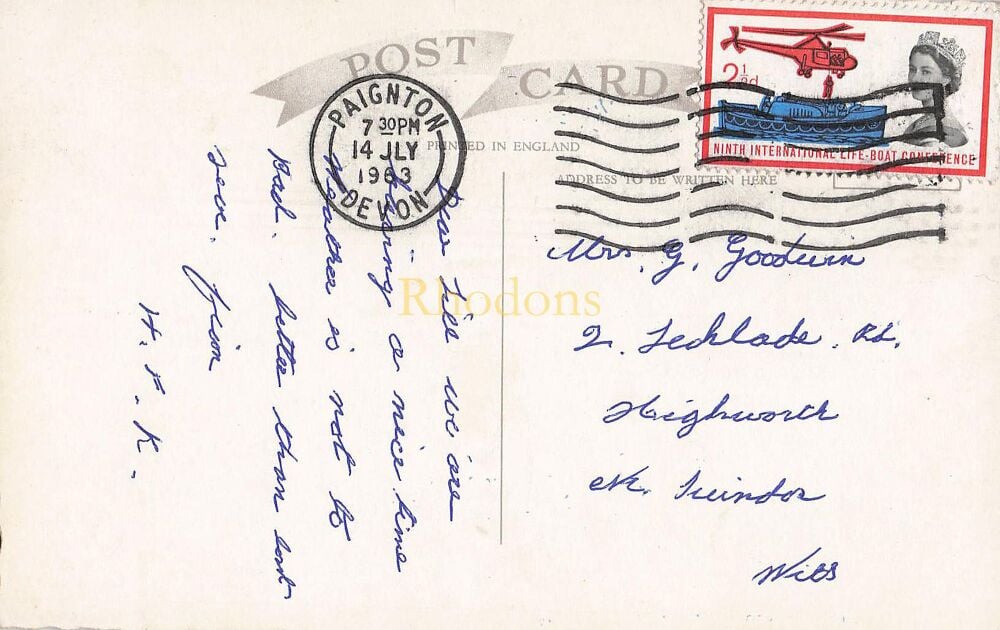 POST CARD
PRINTED IN ENGLAND
ADDRESS TO BE WRITTEN HERE
PAIGNTON
7 30PM
14 JLY
1963
DEVON
2½d
NINTH INTERNATIONAL LIFE-BOAT CONFERENCE
Rhodons
Dear Lill we are
having a nice time
Weather is not to
Bad. better than last
year. from
H. F. K.
Mrs. G. Goodwin
2. Lechlade. Rd.
Highworth
Nr. Swindon
Wilts